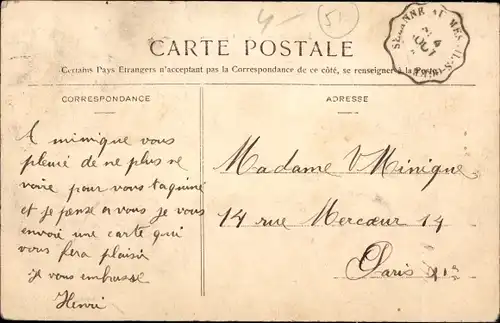 4- 51
CARTE POSTALE
Certains Pays Etrangers n'acceptant pas la Correspondance de ce côté, se renseigner à la Poste
CORRESPONDANCE
A mimique vous
pleuré de ne plus se
voire pour vous taquiné
et je panse a vous je vous
envoie une carte qui
vous fera plaisir
je vous embrasse
Henri
ADRESSE
Madame V Minique
14 rue Mercœur 14
Paris XIe